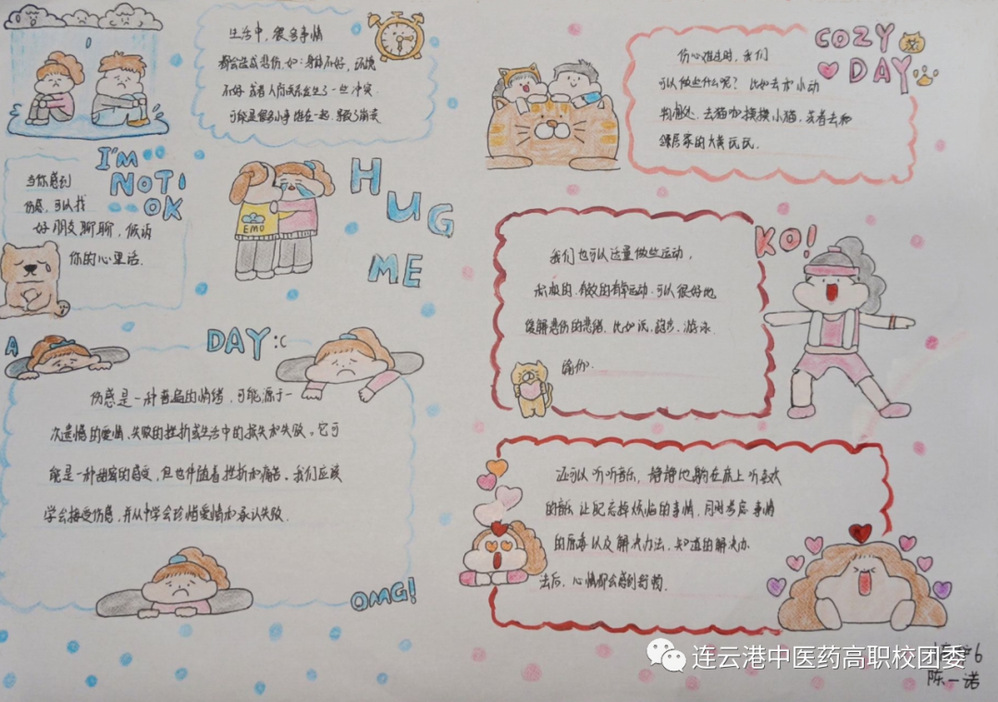 生活中，很多事情
都会造成悲伤，如：身体不好，环境
不好，或者人间关系发生了一些冲突
可能是很多小事堆在一起，导致了崩溃
I'M
NOT
OK
当你感到
伤感，可以找
好朋友聊聊，倾诉
你的心里话.
EMO
HUG
ME
A
DAY:C
伤感是一种普遍的情绪，可能源于一
次遗憾的爱情、失败的挫折或生活中的损失和失败。它可
能是一种甜蜜的感受，但也伴随着挫折和痛苦。我们应该
学会接受伤感，并从中学会珍惜爱情和承认失败.
OMG!
COZY
DAY
伤心难过时，我们
可以做些什么呢？比如去和小动
物相处，去猫咖摸摸小猫，或者去和
邻居家的大黄玩玩.
KO!
我们也可以适量做些运动，
积极的、有效的有氧运动.可以很好地
缓解悲伤的情绪，比如说，跑步、游泳、
瑜伽.
还可以听听音乐，静静地躺在床上听喜欢
的音乐，让自己忘掉烦恼的事情，同时考虑事情
的原委以及解决办法，知道的解决办
法后，心情都会感到舒畅.
陈一诺
连云港中医药高职校团委